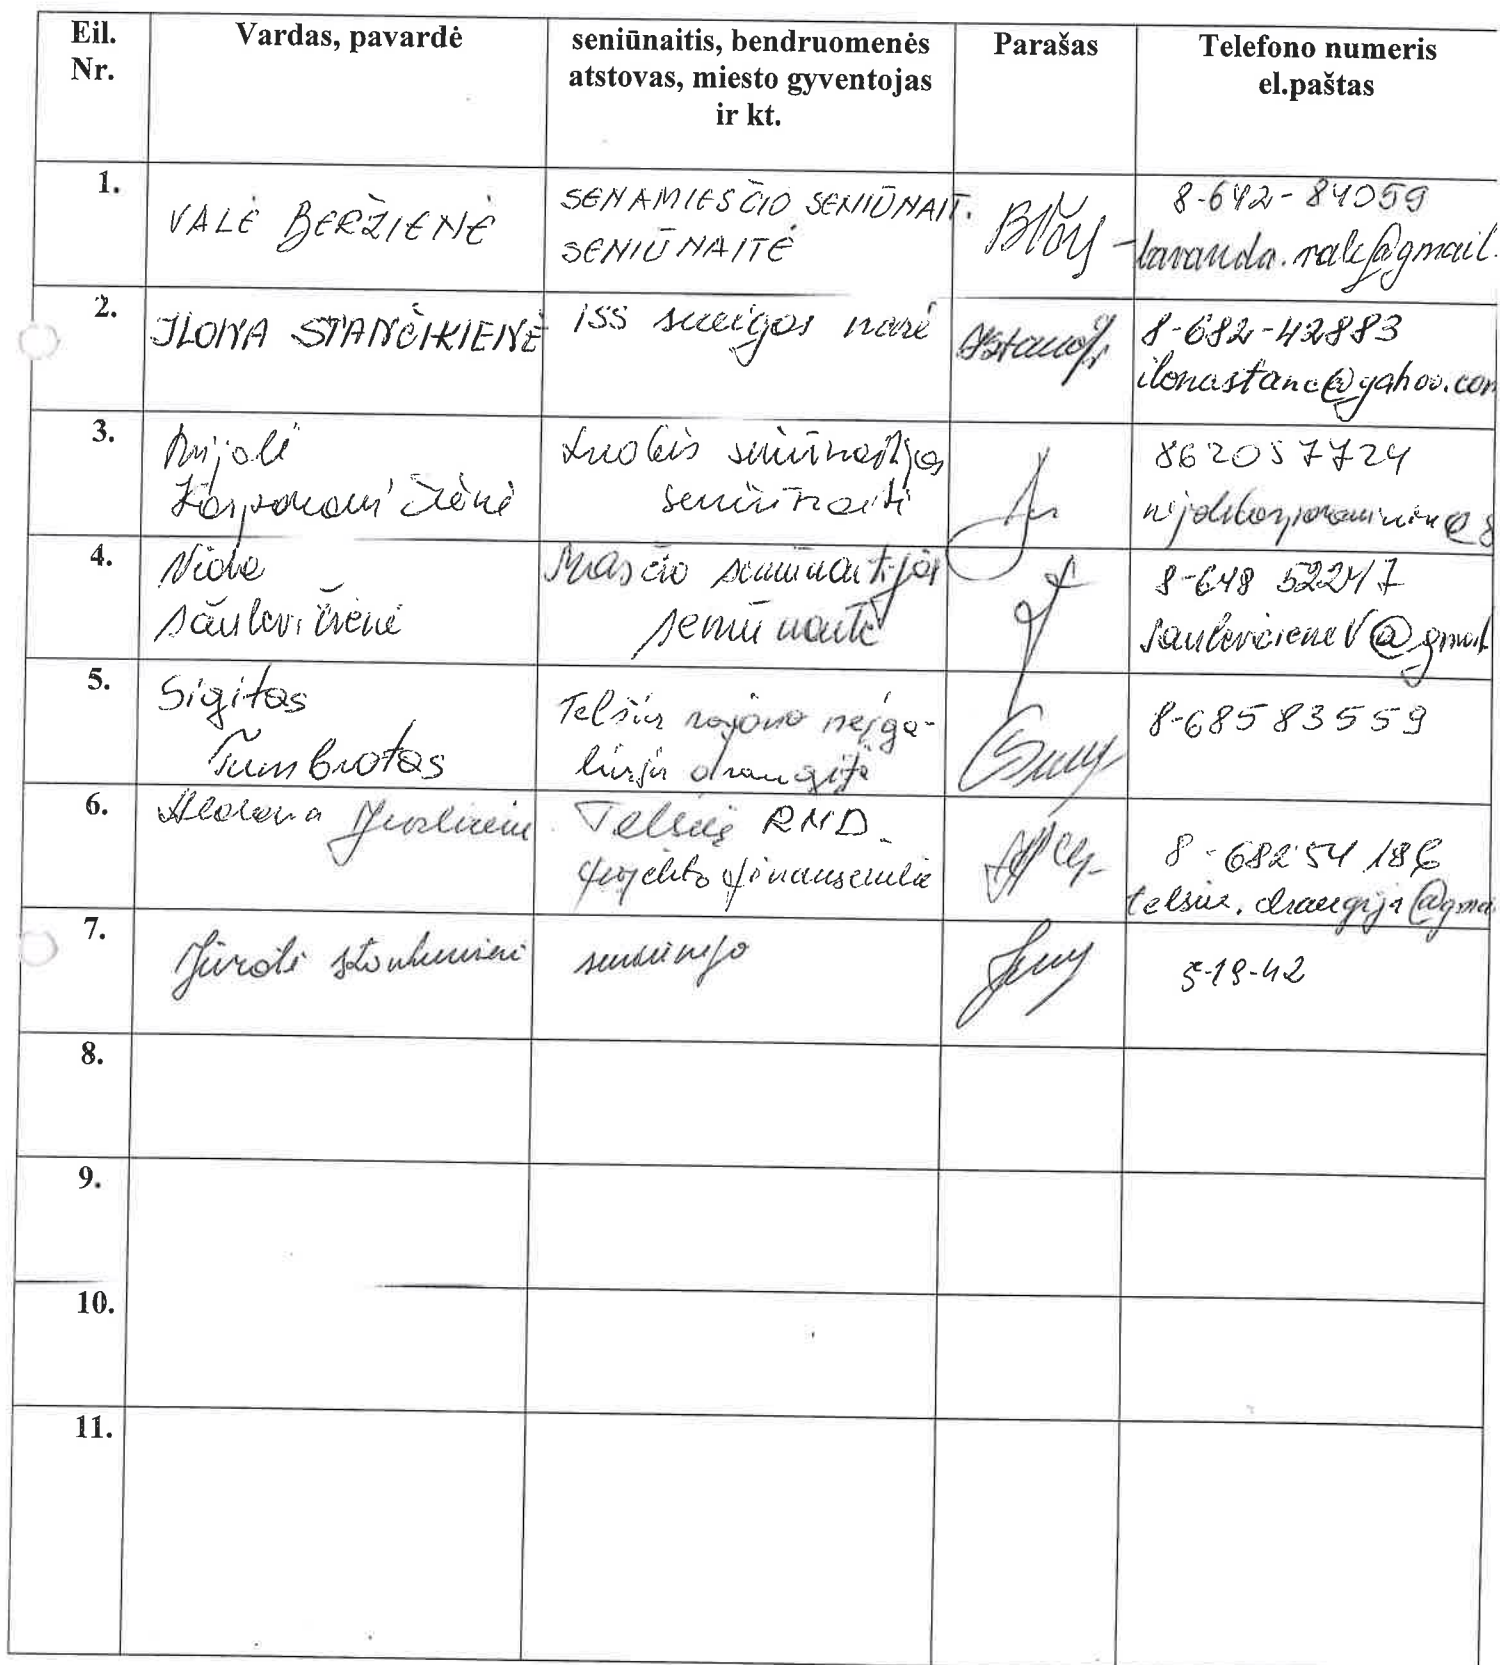 Eil. Nr.
Vardas, pavardė
seniūnaitis, bendruomenės atstovas, miesto gyventojas ir kt.
Parašas
Telefono numeris el.paštas
1.
VALĖ BERŽIENĖ
SENAMIESČIO SENIŪNAIT.
SENIŪNAITĖ
8-642-84059
lavanda.vale@gmail.
2.
ILONA STANČIKIENĖ
ISS sueigos narė
8-682-42883
ilonastanc@yahoo.com
3.
Nijolė
seniūnaitijos
seniūnaitė
862057724
4.
Vida
Saulevičienė
Masčio seniūnaitijos
seniūnaitė
8-648 52247
saulevicieneV@gmail
5.
Sigitas
Šumbrotas
Telšių rajono neįga-
liųjų draugija
8-68583559
6.
Aldona
Telšių RND
projekto finansininkė
8-682 54 186
telsiu.draugija@gmai
7.
Jūratė
seniūnijo
5-19-42
8.
9.
10.
11.